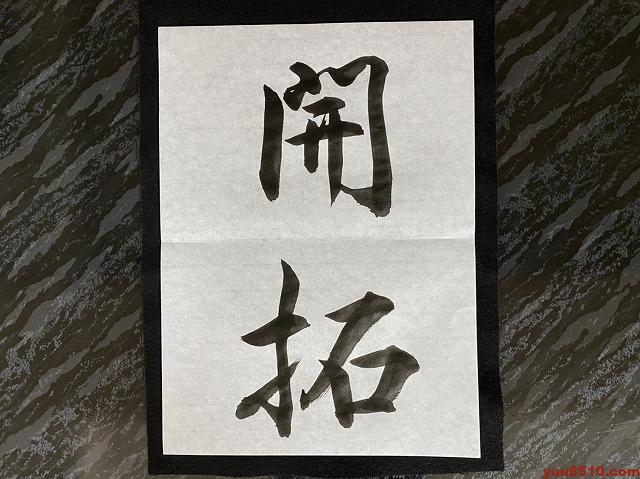 開拓
yuu8510.com